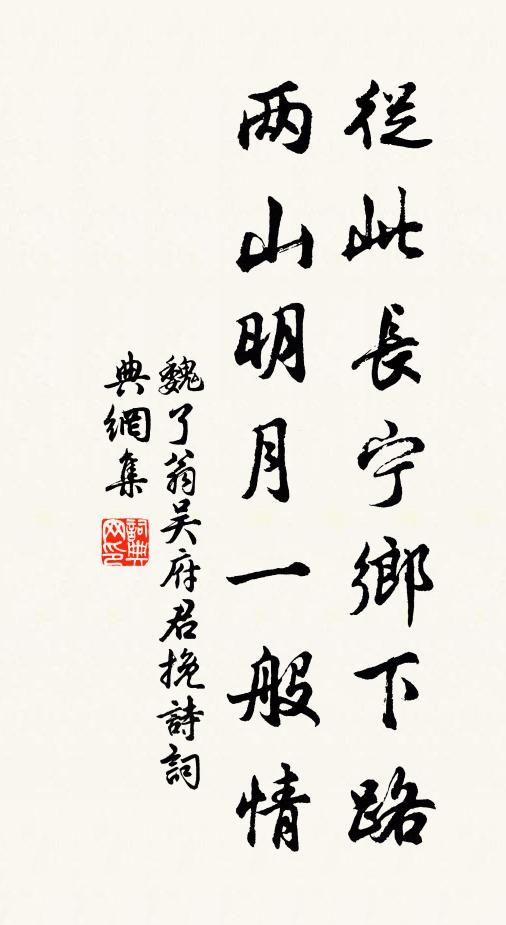 從此長宁鄉下路
两山明月一般情
魏了翁吳府君挽詩詞
典網集
詞典
网印